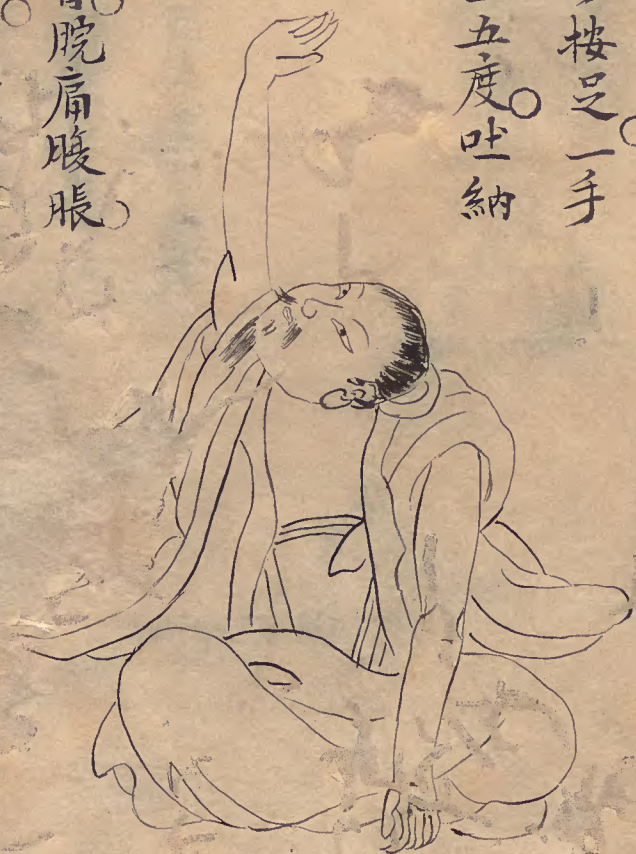 按足一手
五度吐納
脘痛腹脹